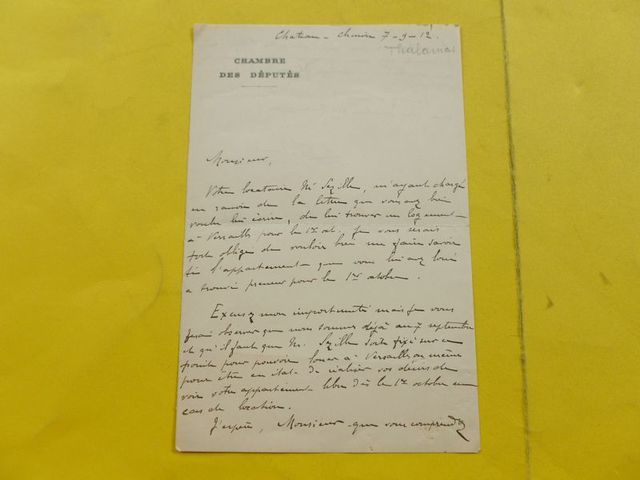 Chateau-Chinon 7-9-12.
Thalamas
CHAMBRE
DES DÉPUTÉS
Monsieur,
Votre locataire Mr Sezille, m'ayant chargé
en raison de la lettre que vous avez bien
voulu lui écrire, de lui trouver un logement
à Versailles pour le 1er oct. je vous serais
fort obligé de vouloir bien me faire savoir
si l'appartement que vous lui avez loué
a trouvé preneur pour le 1er octobre.
Excusez mon importunité mais je vous
ferai observer que nous sommes déjà au 7 septembre
et qu'il faut que Mr. Sezille soit fixé sur ce
point pour pouvoir louer à Versailles ou mieux
pour être en état de réaliser vos désirs de
voir votre appartement libre dès le 1er octobre en
cas de location.
J'espère, Monsieur que vous comprendrez